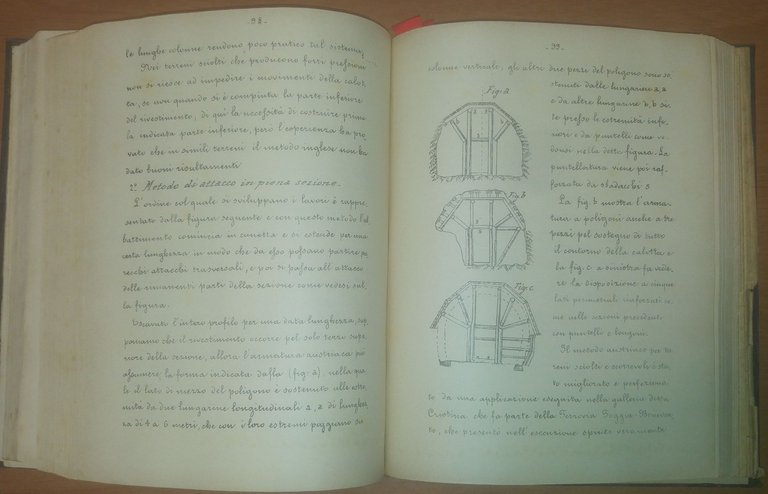 - 98 -
le lunghe colonne rendono poco pratico tal sistema,
Nei terreni sciolti che producono forti pressioni
non si riesce ad impedire i movimenti della calot,
ta, se non quando si è compiuta la parte inferiore
del rivestimento, di qui la necessità di costruire prima
la indicata parte inferiore, però l'esperienza ha pro,
vato che in simili terreni il metodo inglese non ha
dato buoni risultamenti
2º Metodo di attacco in piena sezione.
L'ordine col quale si sviluppano i lavori è rappre,
sentato dalla figura seguente e con questo metodo l'ab
battimento comincia in cunetta e si estende per una
certa lunghezza in modo che da esso possano partire pa,
recchi attacchi trasversali, e poi si passa all'attacco
delle rimanenti parti della sezione come vedesi sul,
la figura.
Escavato l'intero profilo per una data lunghezza, sup,
poniamo che il rivestimento occorre pel solo terzo supe,
riore della sezione, allora l'armatura austriaca può
assumere la forma indicata dalla (fig: a), nella qua,
le il lato di mezzo del poligono è sostenuto alle estre,
mità da due lungarine longitudinali a, a di lunghez,
za di 4 a 6 metri, che con i loro estremi poggiano su
- 99 -
colonne verticali, gli altri due pezzi del poligono sono so,
stenuti dalle lungarine a, a
e da altre lungarine b, b si,
te presso le estremità infe,
riori e da puntelli come ve,
donsi nella detta figura. La
puntellatura viene poi raf,
forzata da sbadacchi s
La fig. b mostra l'arma,
tura a poligoni anche a tre
pezzi pel sostegno di tutto
il contorno della calotta e
la fig. c a sinistra fa vede,
re la disposizione a cinque
lati perimetrali rinforzati co,
me nelle sezioni precedenti
con puntelli e longoni.
Il metodo austriaco per ter
reni sciolti e scorrevoli è sta
to migliorato e perfeziona,
to da una applicazione eseguita nella galleria di Sta
Cristina che fa parte della Ferrovia Foggia-Beneven,
to, che presentò nell'esecuzione spinte veramente
Fig. a
Fig. b
Fig. c